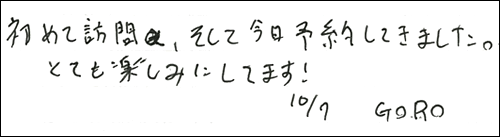 初めて訪問、そして今日予約してきました。
とても楽しみにしてます!
10/7 GO.RO